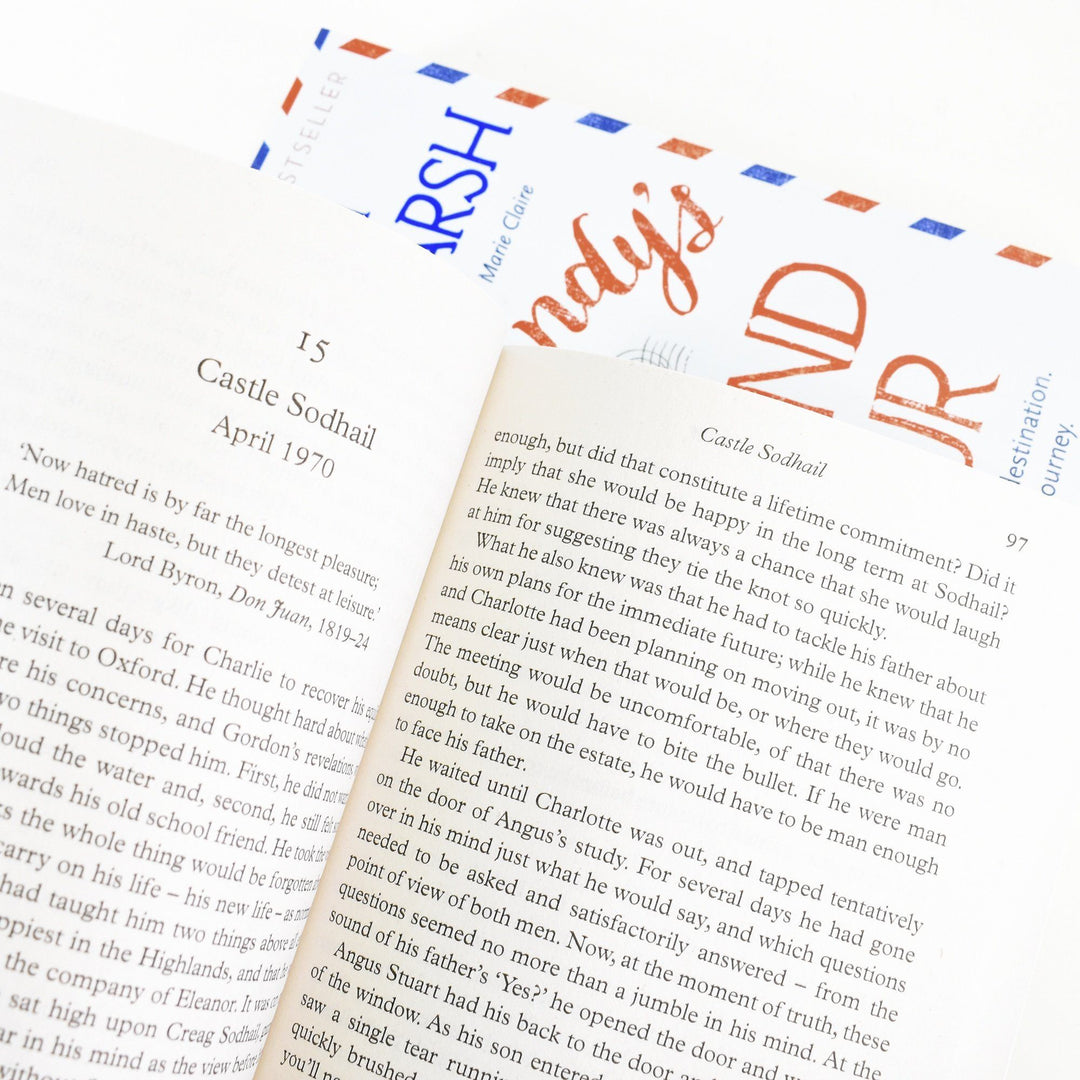 STSELLER
ARSH
Marie Claire
ndy's
ND
UR
lestination.
ourney.
15
Castle Sodhail
April 1970
'Now hatred is by far the longest pleasure;
Men love in haste, but they detest at leisure.'
Lord Byron, Don Juan, 1819–24
n several days for Charlie to recover his
visit to Oxford. He thought hard about
re his concerns, and Gordon's revelations
wo things stopped him. First, he did not
loud the water and, second, he still felt
wards his old school friend. He took the
ts the whole thing would be forgotten
carry on his life – his new life – as
had taught him two things above
ppiest in the Highlands, and that
the company of Eleanor. It was
sat high upon Creag Sodhail,
ar in his mind as the view before
without
Castle Sodhail
97
enough, but did that constitute a lifetime commitment? Did it
imply that she would be happy in the long term at Sodhail?
He knew that there was always a chance that she would laugh
at him for suggesting they tie the knot so quickly.
What he also knew was that he had to tackle his father about
his own plans for the immediate future; while he knew that he
and Charlotte had been planning on moving out, it was by no
means clear just when that would be, or where they would go.
The meeting would be uncomfortable, of that there was no
doubt, but he would have to bite the bullet. If he were man
enough to take on the estate, he would have to be man enough
to face his father.
He waited until Charlotte was out, and tapped tentatively
on the door of Angus's study. For several days he had gone
over in his mind just what he would say, and which questions
needed to be asked and satisfactorily answered – from the
point of view of both men. Now, at the moment of truth, these
questions seemed no more than a jumble in his mind. At the
sound of his father's 'Yes?' he opened the door and
Angus Stuart had his back to the door
of the window. As his son entered
saw a single tear
quickly brushed
you'll